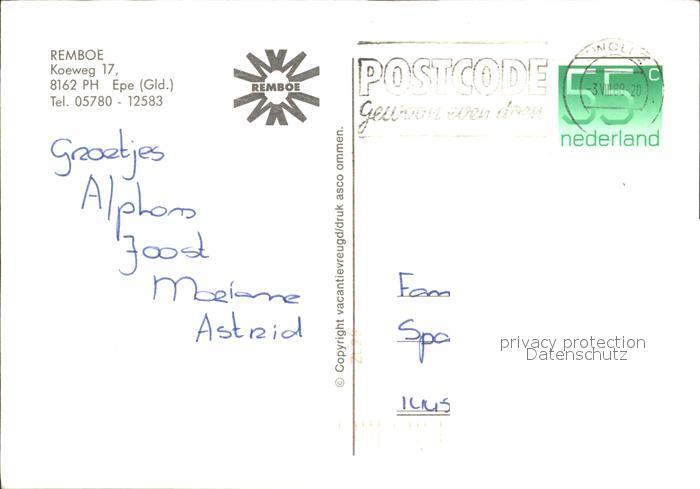 REMBOE
Koeweg 17,
8162 PH Epe (Gld.)
Tel. 05780 - 12583
REMBOE
POSTCODE
gewoon even doen
55 c
nederland
Groetjes
Alphons
Joost
Marianne
Astrid
© Copyright vacantievreugd/druk asco ommen.
Fam
Spa
privacy protection
Datenschutz